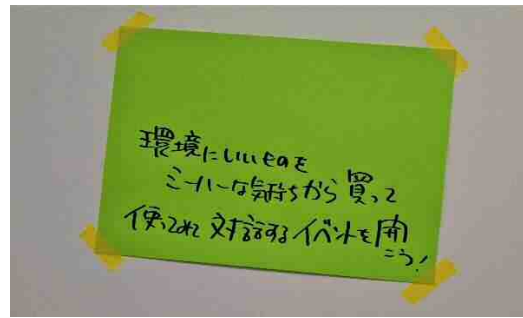 環境にいいものを
ミーハーな気持ちから買って
使ってみて対話するイベントを開
こう！